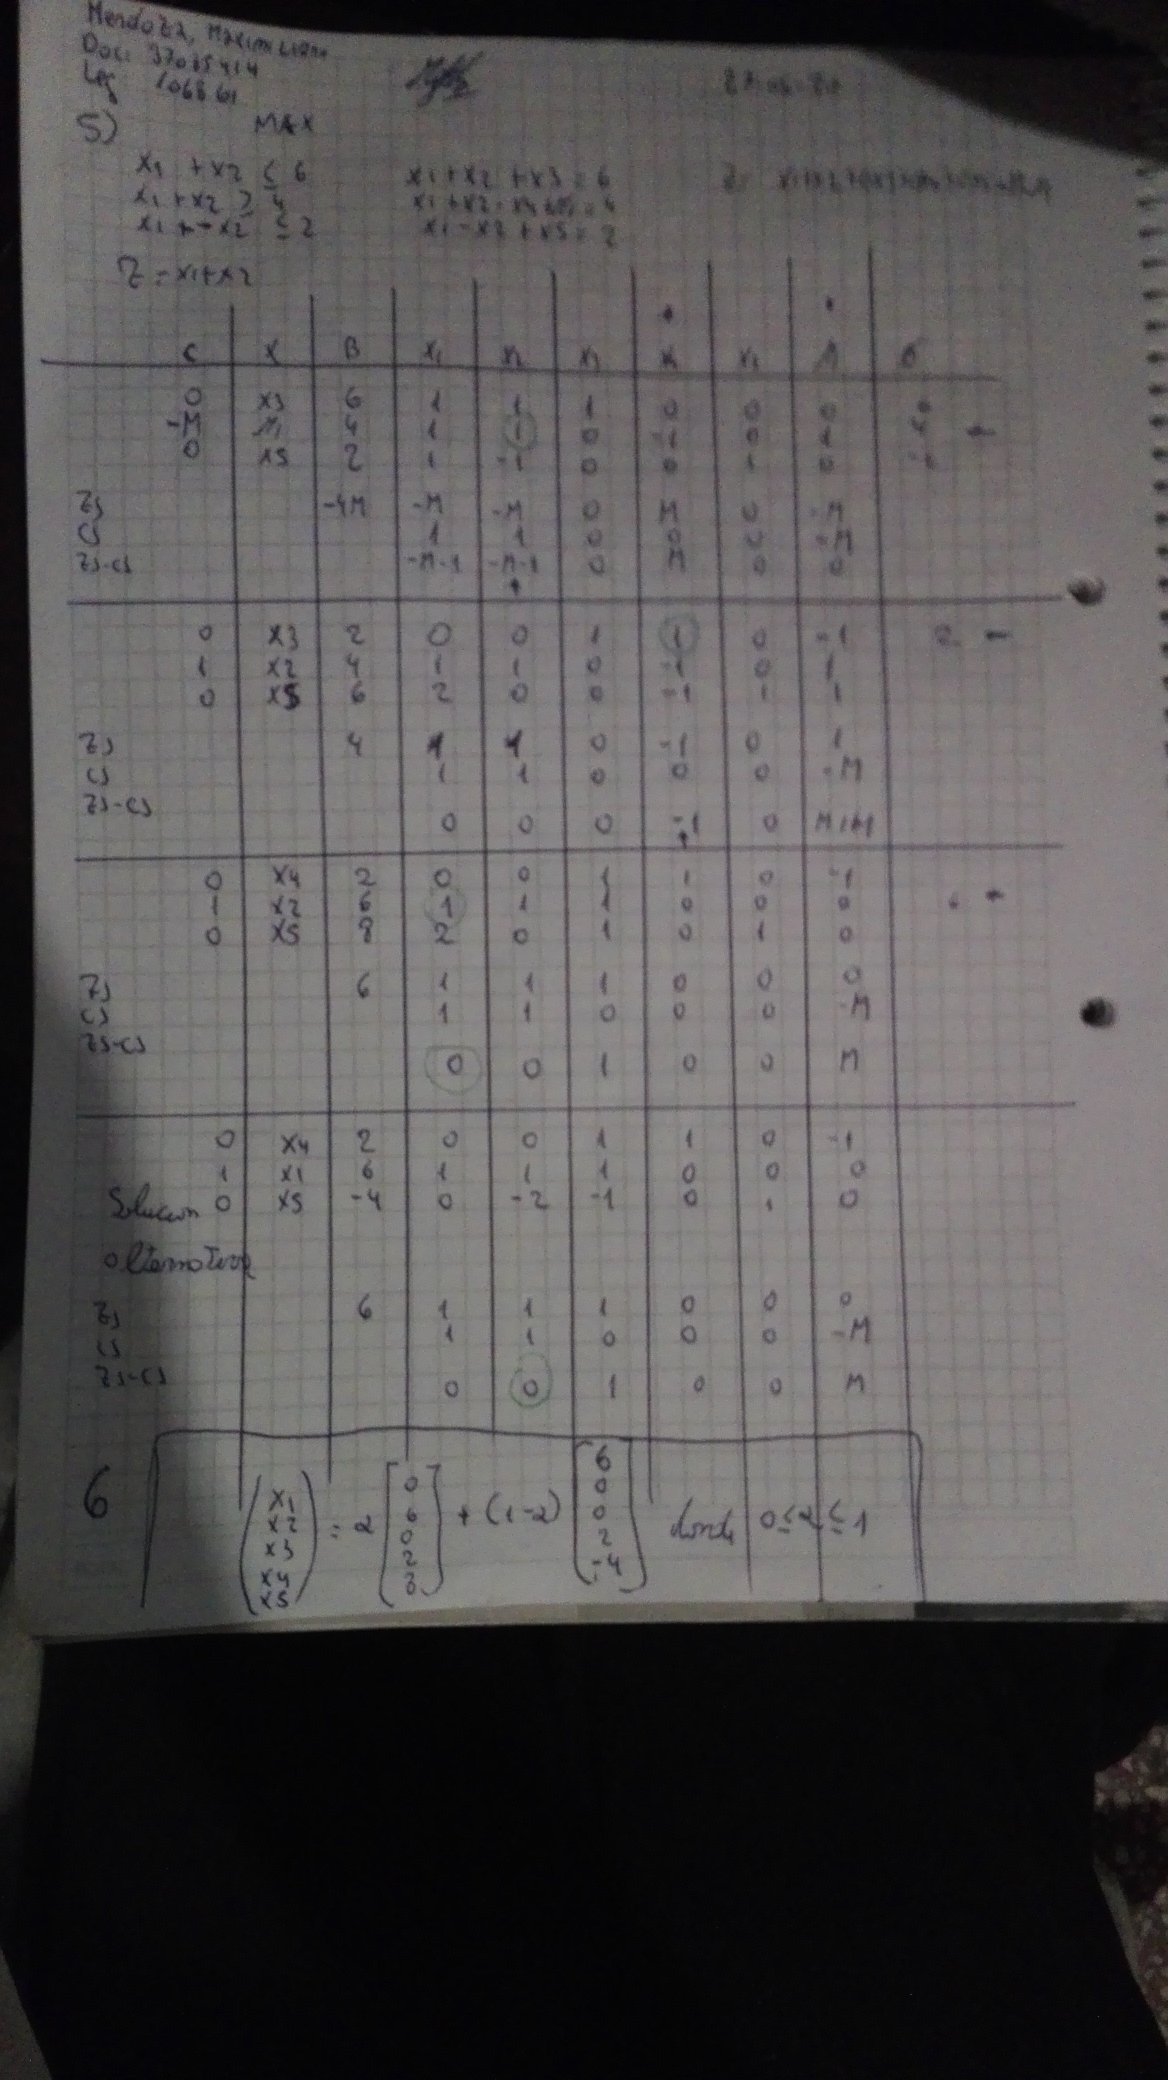 Mendoza, Maximiliano
Doc: 37085414
Leg 106861
5) MAX
x1 + x2 ≤ 6 x1 + x2 + x3 = 6
x1 + x2 ≥ 4 x1 + x2 - x4 = 4
x1 + - x2 ≤ 2 x1 - x2 + x5 = 2
Z = x1 + x2
C X B X1 X2 X3 X4 X5 A θ
0 X3 6 1 1 1 0 0 0
-M 4 1 1 0 -1 0 1 4 ←
0 X5 2 1 -1 0 0 1 0
Zj -4M -M -M 0 M 0 -M
Cj 1 1 0 0 0 -M
Zj-Cj -M-1 -M-1 0 M 0 0
0 X3 2 0 0 1 1 0 -1 2 ←
1 X2 4 1 1 0 -1 0 1
0 X5 6 2 0 0 -1 1 1
Zj 4 1 1 0 -1 0 1
Cj 1 1 0 0 0 -M
Zj-Cj
0 0 0 -1 0
0 X4 2 0 0 1 1 0 -1
1 X2 6 1 1 1 0 0 0
0 X5 8 2 0 1 0 1 0
Zj 6 1 1 1 0 0 0
Cj 1 1 0 0 0 -M
Zj-Cj
0 0 1 0 0 M
0 X4 2 0 0 1 1 0 -1
1 X1 6 1 1 1 0 0 0
Solucion 0 X5 -4 0 -2 -1 0 1 0
alternativa
Zj 6 1 1 1 0 0 0
Cj 1 1 0 0 0 -M
Zj-Cj 0 0 1 0 0 M
6 (x1 x2 x3 x4 x5) = 2 [0 6 0 2 8] + (1-2) [6 0 0 2 -4] donde 0 ≤ 2 ≤ 1